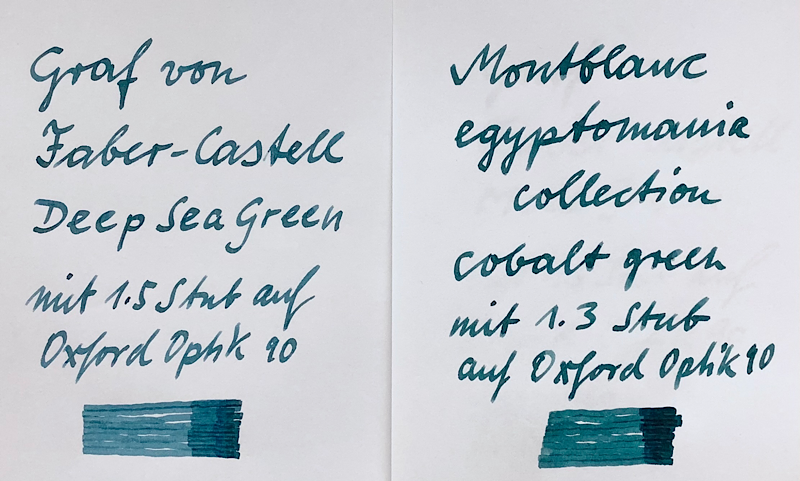 Graf von
Faber-Castell
Deep Sea Green
mit 1.5 Stub auf
Oxford Optik 90
Montblanc
egyptomania
collection
cobalt green
mit 1.3 Stub
auf Oxford Optik 90